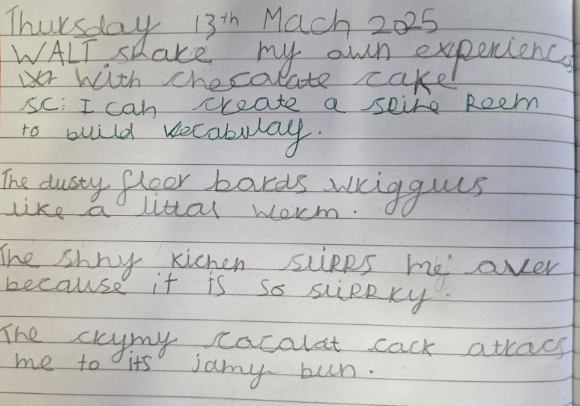 Thursday 13th Mach 2025
WALT shake my own experience
with chocalate cake
SC: I can create a seine Poem
to build vocabulay.
The dusty floor bards wrigguls
like a littal worm.
The shny kichen slipps me over
because it is so slippry.
The crymy cacalat cack attracs
me to its jamy bun.